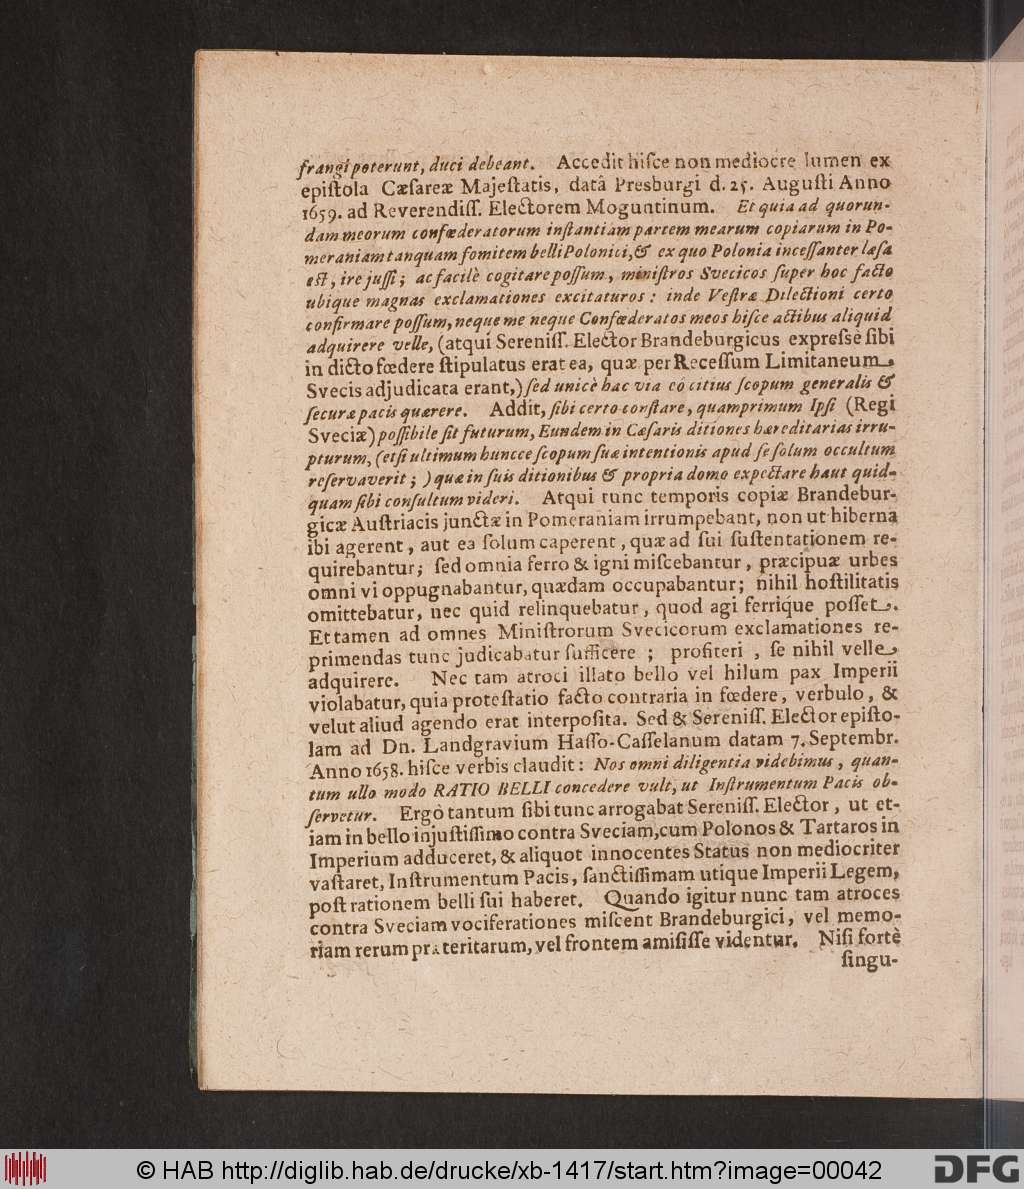 frangi poterunt, duci debeant. Accedit hiſce non mediocre lumen ex
epiſtola Cæſareæ Majeſtatis, datâ Presburgi d. 25. Auguſti Anno
1659. ad Reverendiſſ. Electorem Moguntinum. Et quia ad quorun-
dam meorum confœderatorum inſtantiam partem mearum copiarum in Po-
meraniam tanquam fomitem belli Polonici, & ex quo Polonia inceſſanter læſa
eſt, ire juſſi; ac facilè cogitare poſſum, miniſtros Svecicos ſuper hoc facto
ubique magnas exclamationes excitaturos: inde Veſtræ Dilectioni certo
confirmare poſſum, neque me neque Confœderatos meos hiſce actibus aliquid
adquirere velle, (atqui Sereniſſ. Elector Brandeburgicus expreſsè ſibi
in dicto fœdere ſtipulatus erat ea, quæ per Receſſum Limitaneum
Svecis adjudicata erant,) ſed unicè hac via eò citius ſcopum generalis &
ſecuræ pacis quærere. Addit, ſibi certo conſtare, quamprimum Ipſi (Regi
Sveciæ) poſſibile ſit futurum, Eundem in Cæſaris ditiones hæreditarias irru-
pturum, (etſi ultimum huncce ſcopum ſuæ intentionis apud ſe ſolum occultum
reſervaverit;) quæ in ſuis ditionibus & propria domo expectare haut quid-
quam ſibi conſultum videri. Atqui tunc temporis copiæ Brandebur-
gicæ Auſtriacis junctæ in Pomeraniam irrumpebant, non ut hiberna
ibi agerent, aut ea ſolum caperent, quæ ad ſui ſuſtentationem re-
quirebantur; ſed omnia ferro & igni miſcebantur, præcipuæ urbes
omni vi oppugnabantur, quædam occupabantur; nihil hoſtilitatis
omittebatur, nec quid relinquebatur, quod agi ferrique poſſet.
Et tamen ad omnes Miniſtrorum Svecicorum exclamationes re-
primendas tunc judicabatur ſufficere; profiteri, ſe nihil velle
adquirere. Nec tam atroci illato bello vel hilum pax Imperii
violabatur, quia proteſtatio facto contraria in fœdere, verbulo, &
velut aliud agendo erat interpoſita. Sed & Sereniſſ. Elector epiſto-
lam ad Dn. Landgravium Haſſo-Caſſelanum datam 7. Septembr.
Anno 1658. hiſce verbis claudit: Nos omni diligentia videbimus, quan-
tum ullo modo RATIO BELLI concedere vult, ut Inſtrumentum Pacis ob-
ſervetur. Ergò tantum ſibi tunc arrogabat Sereniſſ. Elector, ut et-
iam in bello injuſtiſſimo contra Sveciam, cum Polonos & Tartaros in
Imperium adduceret, & aliquot innocentes Status non mediocriter
vaſtaret, Inſtrumentum Pacis, ſanctiſſimam utique Imperii Legem,
poſt rationem belli ſui haberet. Quando igitur nunc tam atroces
contra Sveciam vociferationes miſcent Brandeburgici, vel memo-
riam rerum præteritarum, vel frontem amiſiſſe videntur. Niſi fortè
ſingu-
© HAB http://diglib.hab.de/drucke/xb-1417/start.htm?image=00042
DFG